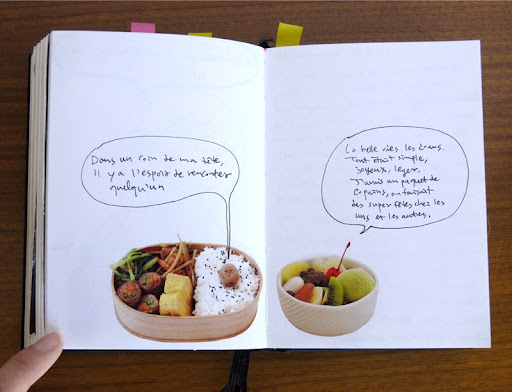 Dans un coin de ma tête,
Il y a l'espoir de rencontrer
quelqu'un
La belle vies les 20 ans.
Tout était simple,
joyeux, léger.
J'avais un paquet de
copains, on faisait
des super fêtes chez les
uns et les autres.